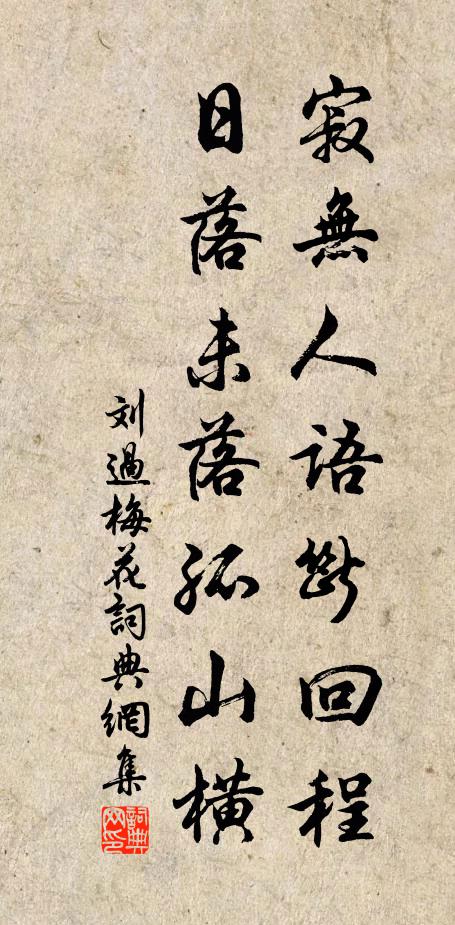 寂無人語斷回程
日落未落孤山橫
刘過梅花詞典網集
詞典网印